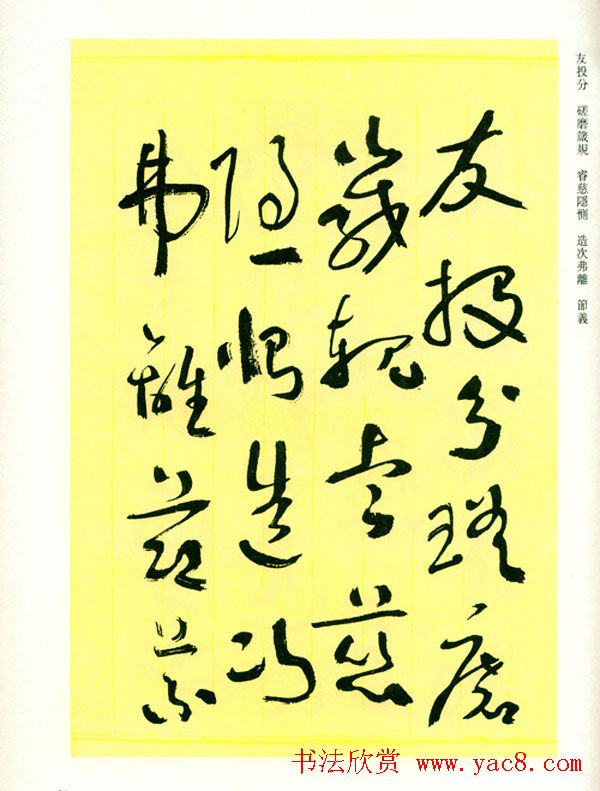 友投分　磋磨箴規　睿慈隱惻　造次弗離　節義
友投分磋磨
箴規睿慈
隱惻造次
弗離節義
书法欣赏 www.yac8.com